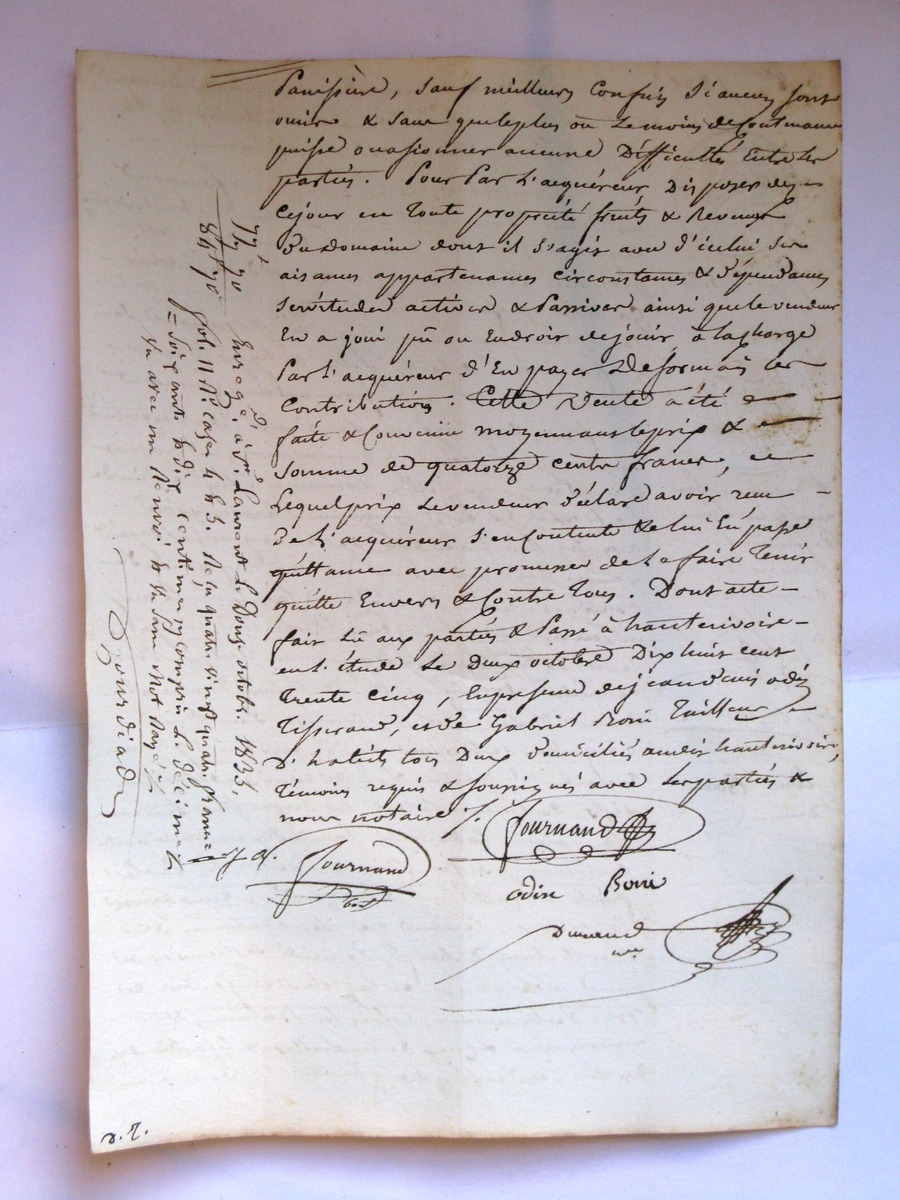 Panissière, sauf meilleurs confins si aucuns sont
omis & sans que le plus ou le moins de contenance
puisse occasionner aucune difficulté entre les
parties. Pour par l'acquéreur disposer dès
ce jour en toute propriété fruits & revenus
du domaine dont il s'agit avec d'icelui ses
aisances appartenances circonstances & dépendances
servitudes actives & passives ainsi que le vendeur
en a joui pû ou en droit de jouir, à la charge
par l'acquéreur d'en payer désormais les
contributions. Cette vente a été
faite & convenue moyennant le prix &
somme de quatorze cents francs,
lequel prix le vendeur déclare avoir reçu
de l'acquéreur s'en contente & lui en passe
quittance avec promesse de le faire tenir
quitte envers & contre tous. Dont acte
fait lû aux parties & passé à hauterivoire
en l'étude le deux octobre dix huit cent
trente cinq, en présence de jean odin
Tisserand, et de Gabriel Boni Tailleur
d'habits tous deux domiciliés audit hauterivoire,
témoins requis & soussignés avec les parties &
nous notaire
fournand
J. A. fournand
odin Boni
Durand
nre
77, 70
84, 70
Enregé. à St. Laurent le douze octobre 1835,
fol. 11 No. cases 4 & 5. Reçu quatre vingt quatre francs
soixante & dix centimes y compris le décime
il y a avec un Renvoi & sans mot rayé
Gourdiad
d. 7.